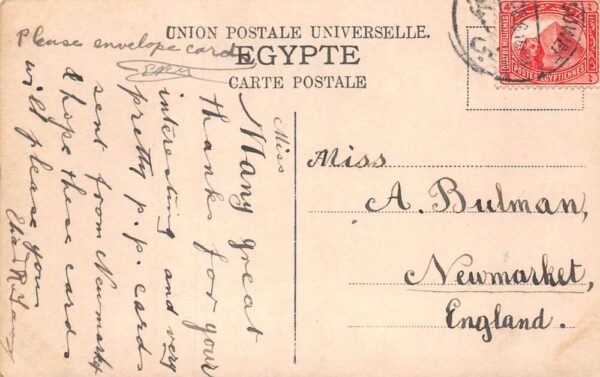 UNION POSTALE UNIVERSELLE.
EGYPTE
CARTE POSTALE
Please envelope cards
POSTES EGYPTIENNES
Miss
A. Bulman,
Newmarket,
England.
Miss
Many great
thanks for your
interesting and very
pretty p.p. cards
sent from Newmarket
& hope these cards
will please you